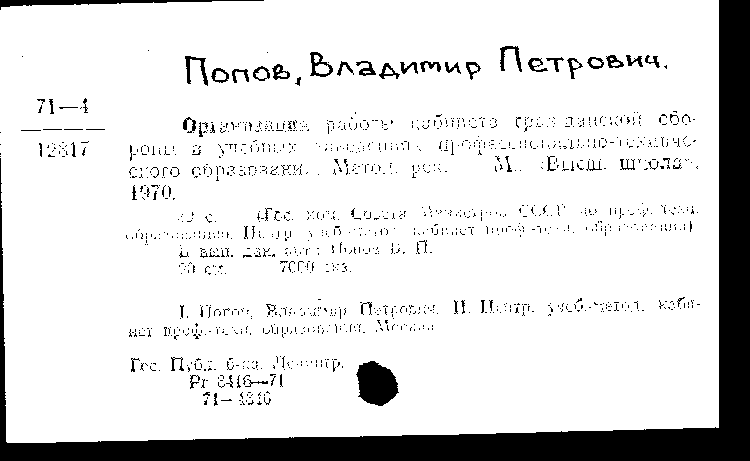 Попов, Владимир Петрович.
71—4
12817
Организация работы кабинета гражданской обо-
роны в учебных заведениях профессионально-техниче-
ского образования. Метод. рек. М., «Высш. школа»,
1970.
с. (Гос. ком. Совета Министров СССР по проф.-техн.
образованию. Центр. учеб.-метод. кабинет проф.-техн. образования).
В вып. дан. авт.: Попов В. П.
20 см. 7000 экз.
I. Попов, Владимир Петрович. II. Центр. учеб.-метод. каби-
нет проф.-техн. образования. Москва
Гос. Публ. б-ка. Ленингр.
Pr 8416—71
71—4846